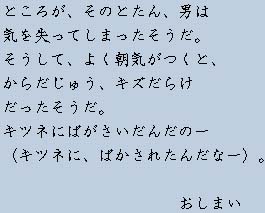 ところが、そのとたん、男は
気を失ってしまったそうだ。
そうして、よく朝気がつくと、
からだじゅう、キズだらけ
だったそうだ。
キツネにばがさいだんだのー
（キツネに、ばかされたんだなー）。
おしまい